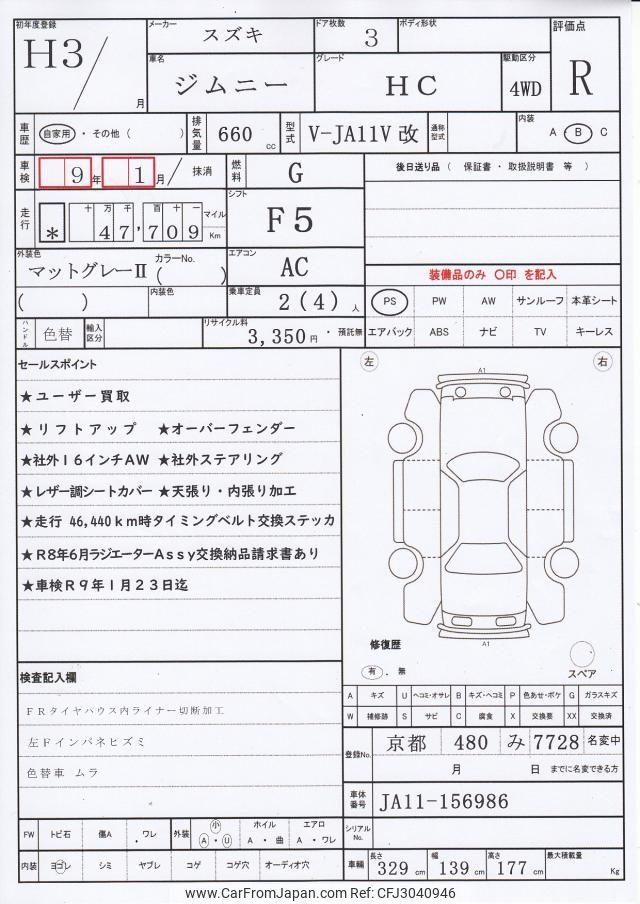 初年度登録 H3 / 月
メーカー スズキ
ドア枚数 3
ボディ形状
評価点 R
車名 ジムニー
グレード HC
駆動区分 4WD
車歴 自家用 ・ その他 ( )
排気量 660 cc
型式 V-JA11V 改
通称型式
内装 A ・ B ・ C
車検 9 年 1 月 / 抹消
燃料 G
後日送り品 ( 保証書 ・ 取扱説明書 等 )
走行 * 十 万 千 百 十 一
47,709 マイル Km
シフト F5
外装色 マットグレーⅡ カラーNo. ( )
エアコン AC
装備品のみ 〇印 を記入
( ) 内装色
乗車定員 2 (4) 人
PS PW AW サンルーフ 本革シート
エアバック ABS ナビ TV キーレス
ハンドル 色替 輸入区分
リサイクル料 3,350 円 ・ 預託無
セールスポイント
★ユーザー買取
★リフトアップ ★オーバーフェンダー
★社外16インチAW ★社外ステアリング
★レザー調シートカバー ★天張り・内張り加工
★走行 46,440km時タイミングベルト交換ステッカ
★R8年6月ラジエーターAssy交換納品請求書あり
★車検R9年1月23日迄
左 右
A1
A1
修復歴
有 . 無
スペア
検査記入欄
FRタイヤハウス内ライナー切断加工
左Fインパネヒズミ
色替車 ムラ
A キズ U ヘコミ・オサレ B キズ・ヘコミ P 色あせ・ボケ G ガラスキズ
W 補修跡 S サビ C 腐食 X 交換要 XX 交換済
登録No. 京都 480 み 7728 名変中
月 日 までに名変できる方
車体番号 JA11-156986
シリアルNo.
FW トビ石 傷A . ワレ 外装 小 A ・ U ホイル A ・ 曲 エアロ A ・ ワレ
内装 ヨゴレ シミ ヤブレ コゲ コゲ穴 オーディオ穴
車輌 長さ 329 cm 幅 139 cm 高さ 177 cm 最大積載量 Kg
www.CarFromJapan.com Ref: CFJ3040946